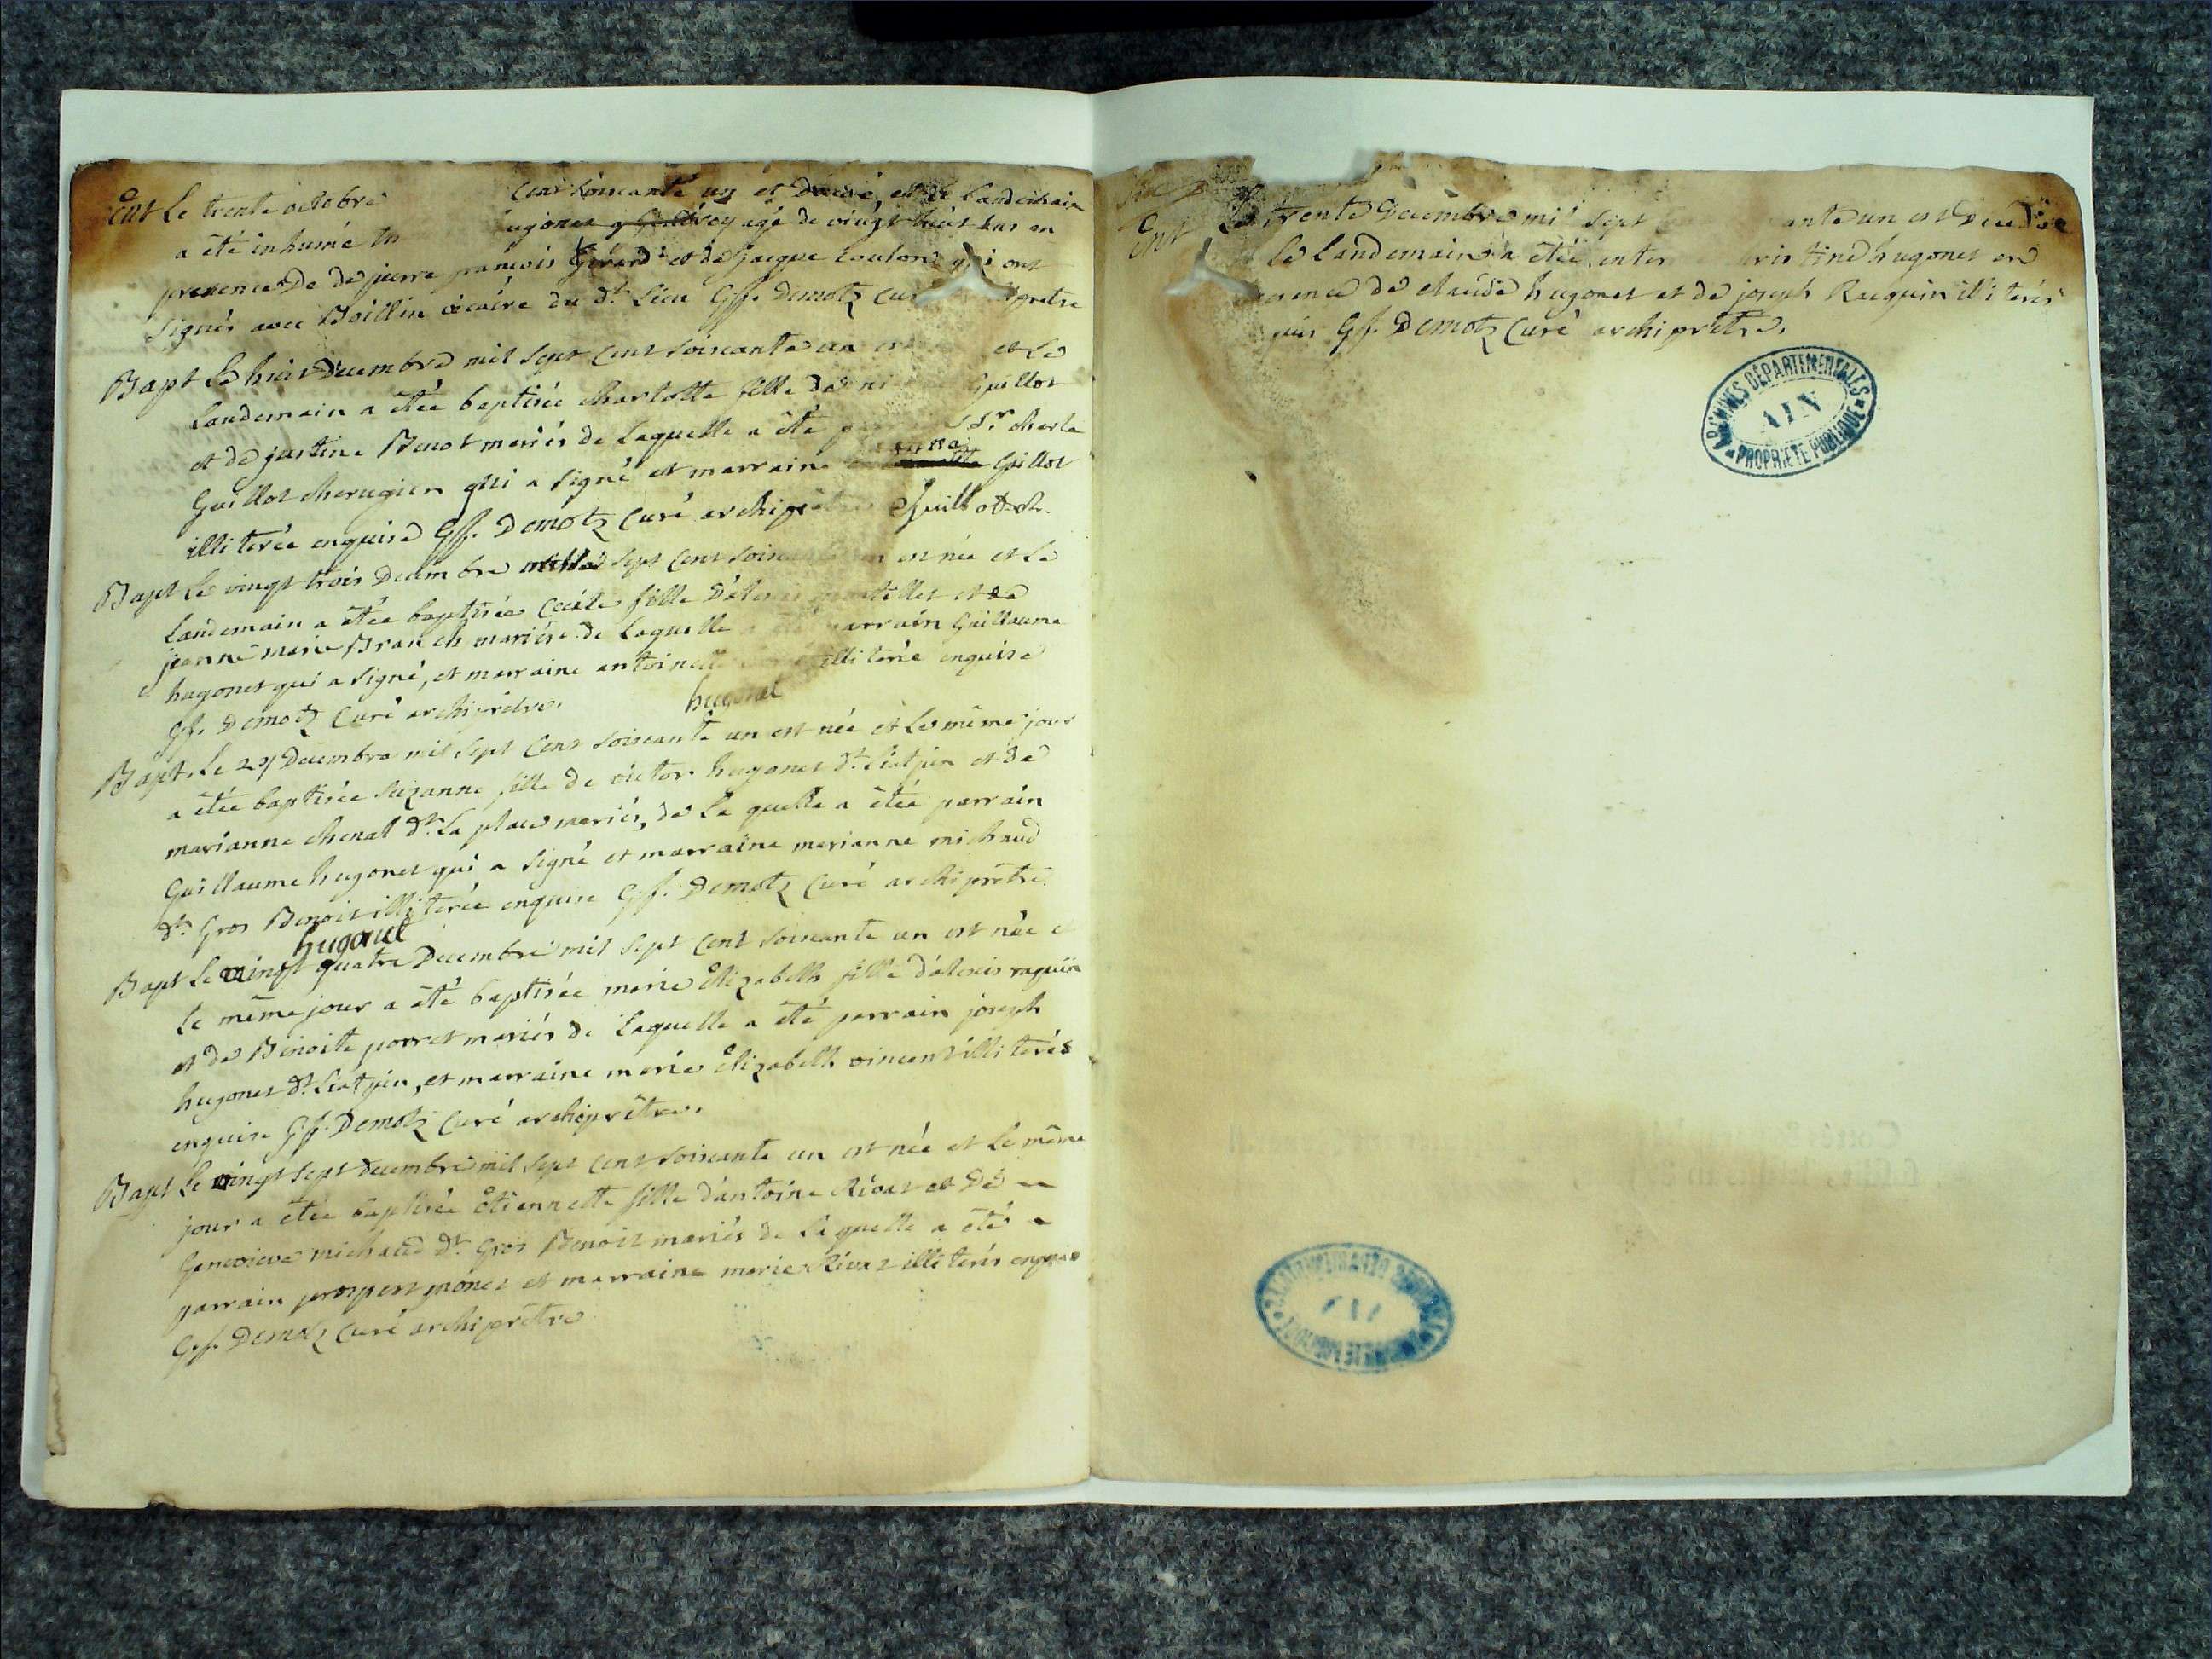 Ent Le trente octobre cent soixante un et decedé, et le landemain
a été inhumé hugonet agé de vingt huit ans en
presence de de pierre francois Girard et de jacque coulon qui ont
signés avec Boillin vicaire du dt. lieu Gf. Demotz curé pretre
Bapt Le huit Decembre mil sept cent soixante un est et Le
landemain a étée baptisée charlotte fille de Guillot
et de justine Benot mariés de laquelle a été Sr. charle
Guillot cherugien qui a signé et marraine Guillot
illiterée enquise Gf. Demotz curé archiprêtre Guillot
Bapt Le vingt trois Decembre sept cent soixante un est née et Le
Landemain a étée baptisée Cecile fille d'alexis et de
jeanne marie mariés de Laquelle a été parrain Guillaume
hugonet qui a signé, et marraine antoinette illiterée enquise
Gf. Demotz Curé archiprêtre. hugonet
Bapt. Le 24 Decembre mil sept Cent soixante un est née et Le même jour
a étée baptisée suzanne fille de victor hugonet dt. et de
marianne chenal dt. La place mariés, de La quelle a étée parrain
Guillaume hugonet qui a signé et marraine marianne michaud
dt. Gros Benoit illiterée enquise Gf. Demotz Curé archiprêtre.
hugonet
Bapt Le vingt quatre Decembre mil sept cent soixante un est née et
Le même jour a été baptisée marie Elizabeth fille d'alexis raquin
et de Benoite porret mariés de Laquelle a été parrain joseph
hugonet dt. , et marraine marie Elizabeth vincent illiterés
enquise Gf. Demotz Curé archiprêtre.
Bapt Le vingt sept decembre mil sept cent soixante un est née et Le même
jour a étée baptisée Etiennette fille d'antoine Rivat et de
Genevieve michaud dt. Gros Benoit mariés de La quelle a été
parrain prospert ponet et marraine marie Rivat illiterés enquis
Gf. Demotz Curé archiprêtre
Ent Le trente Decembre mil sept ante un est Decedée
Le Landemain a étée hugonet en
presence de claude hugonet et de joseph Racquin illiterés
quis Gf. Demotz Curé archiprêtre.
ARCHIVES DÉPARTEMENTALES
AIN
PROPRIÉTÉ PUBLIQUE
ARCHIVES DÉPARTEMENTALES
AIN
PROPRIÉTÉ PUBLIQUE